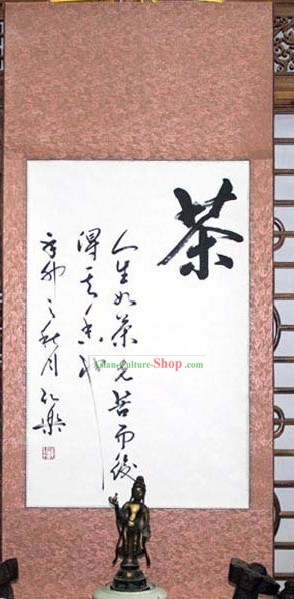 茶
人生如茶先苦而後
得其香也
辛卯之秋月仁樂
Asian-Culture-Shop.com